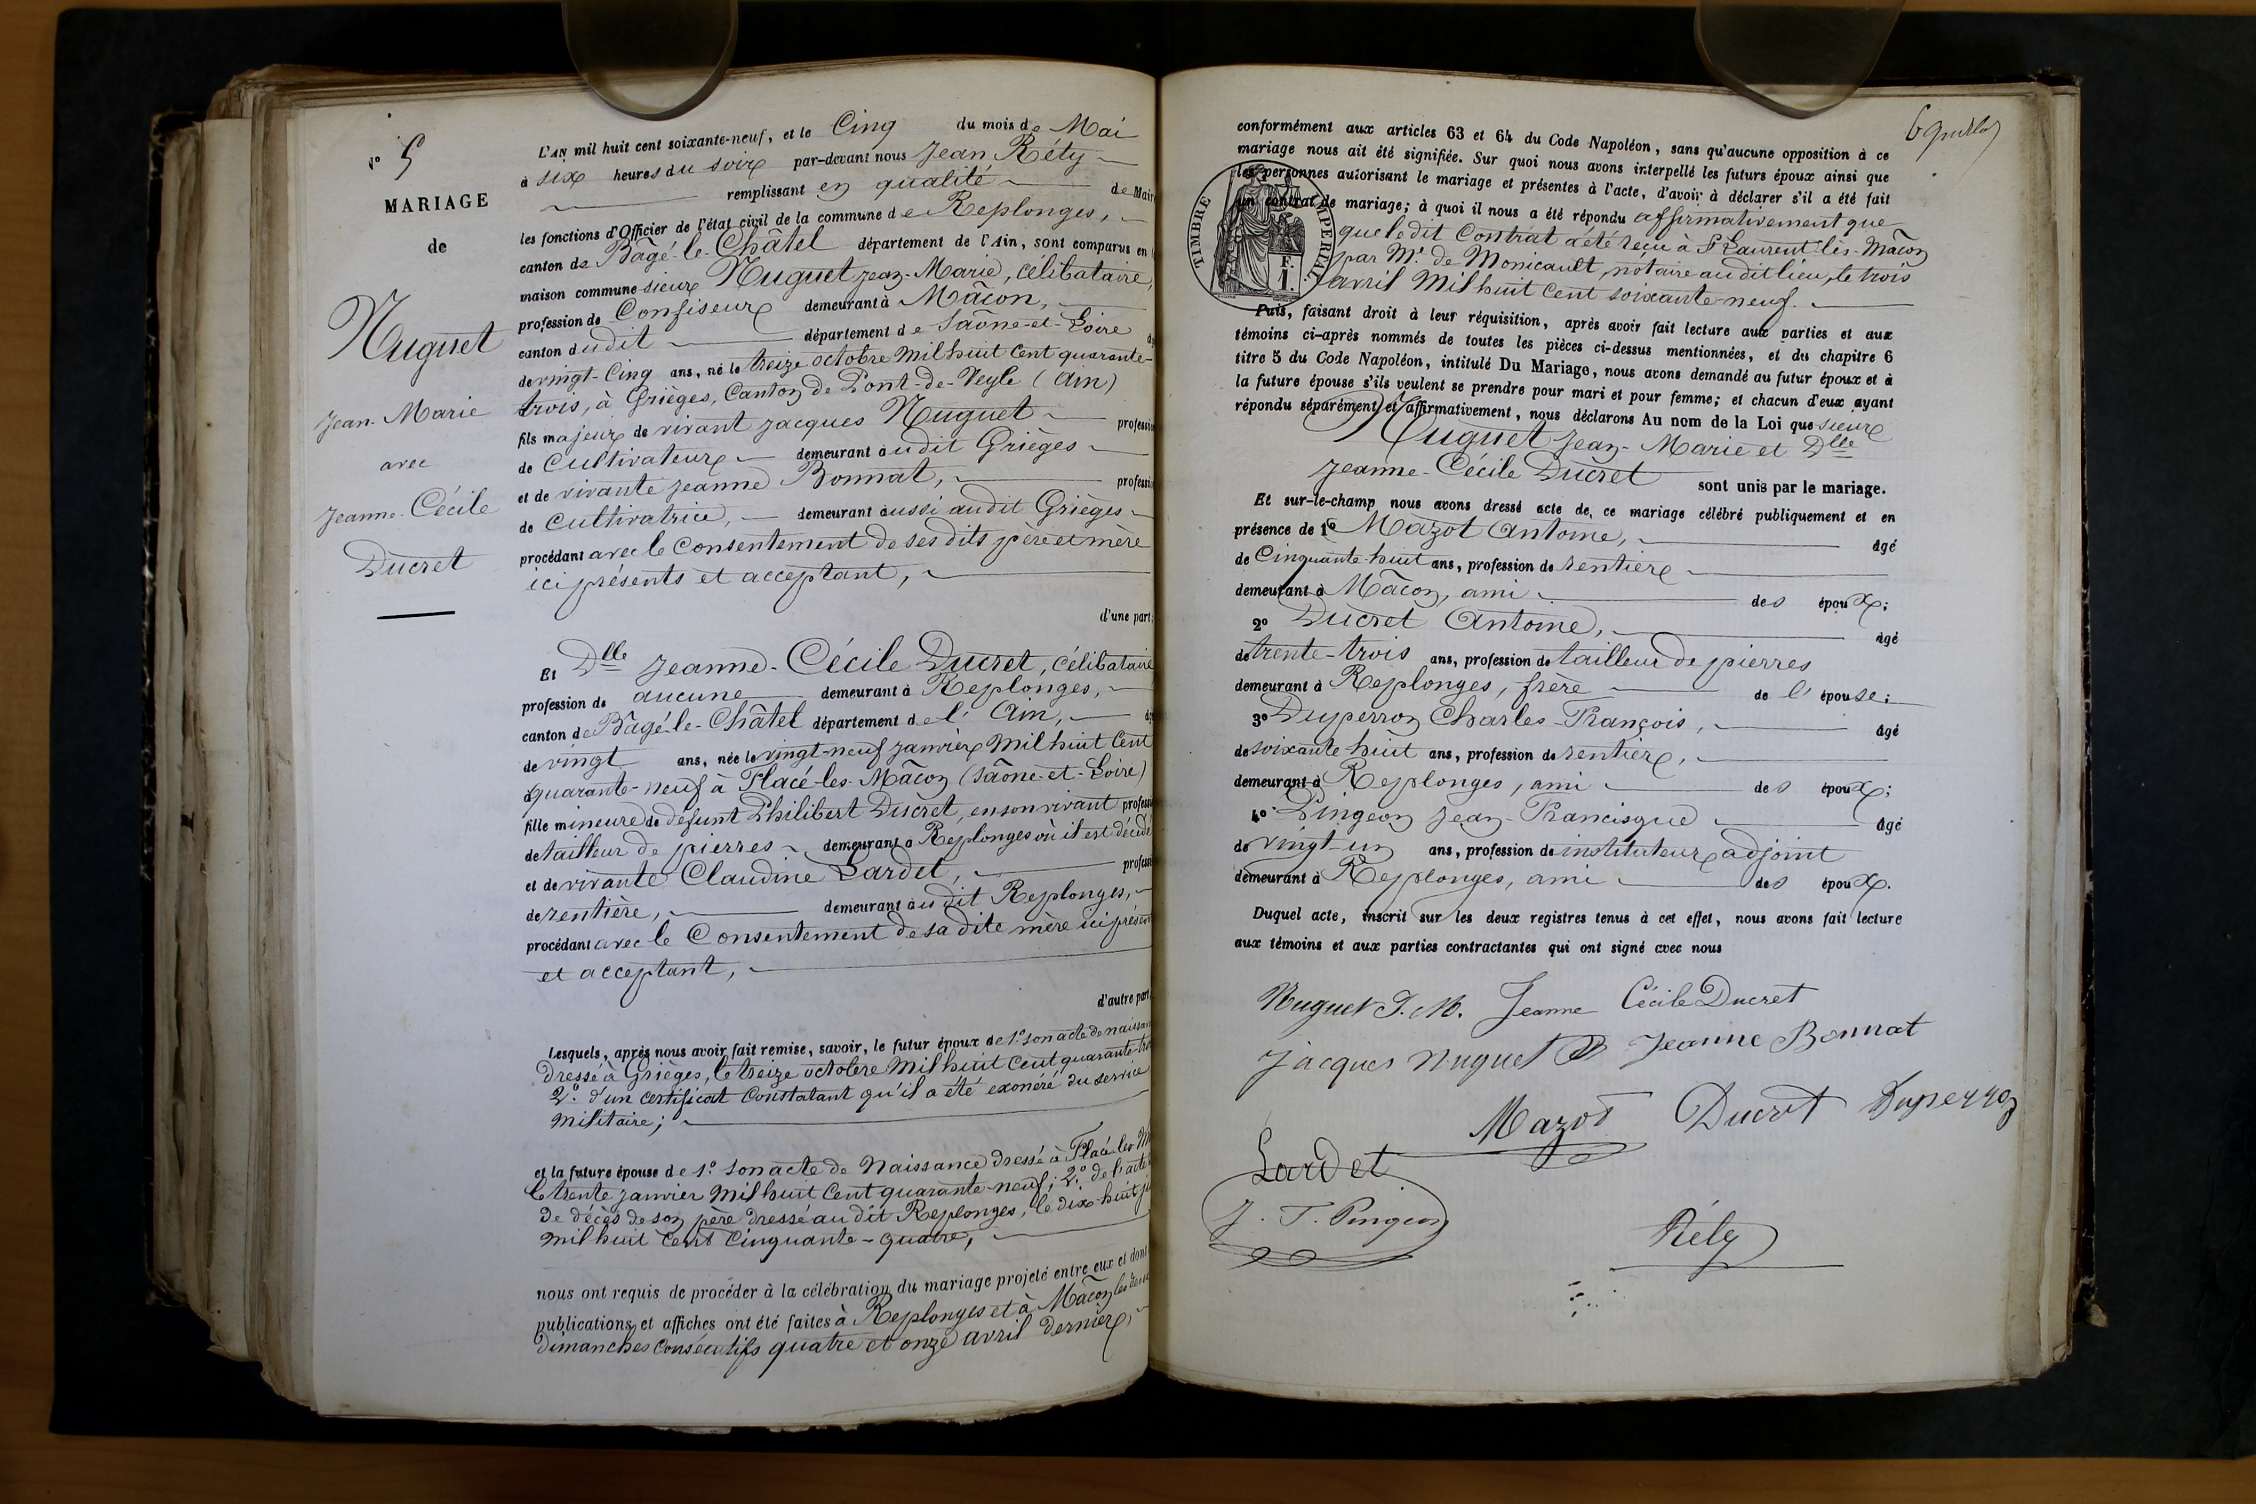 N° 5
MARIAGE
de
Nuguet
Jean-Marie
avec
Jeanne-Cécile
Ducret
L'AN mil huit cent soixante-neuf, et le Cinq du mois de Mai
à six heures du soir par-devant nous Jean Réty
remplissant en qualité de Maire
les fonctions d'Officier de l'état civil de la commune de Replonges,
canton de Bâgé-le-Châtel département de l'Ain, sont comparus en
maison commune sieur Nuguet Jean-Marie, célibataire,
profession de Confiseur demeurant à Mâcon,
canton dudit département de Saône-et-Loire
de vingt-Cinq ans, né le treize octobre Mil huit Cent quarante-
trois, à Grièges, Canton de Pont-de-Veyle (Ain)
fils majeur de vivant Jacques Nuguet professio
de Cultivateur demeurant audit Grièges
et de vivante Jeanne Bonnat, professi
de Cultivatrice, demeurant aussi audit Grièges
procédant avec le Consentement de ses dits père et mère
ici présents et acceptant,
d'une part;
Et Dlle Jeanne-Cécile Ducret, célibataire
profession de aucune demeurant à Replonges,
canton de Bâgé-le-Châtel département de l'Ain,
de vingt ans, née le vingt-neuf Janvier Mil huit Cent
quarante-neuf à Flacé-les-Mâcon (Saône-et-Loire)
fille mineure de défunt Philibert Ducret, en son vivant profess
de tailleur de pierres demeurant à Replonges où il est décédé
et de vivante Claudine Lardet, profess
de rentière, demeurant audit Replonges,
procédant avec le Consentement de sa dite mère ici présen
et acceptant,
d'autre part
Lesquels, après nous avoir fait remise, savoir, le futur époux de 1° son acte de naissan
dressé à Grièges, le treize octobre Mil huit Cent quarante-tro
2° d'un certificat Constatant qu'il a été exonéré du service
militaire;
et la future épouse de 1° son acte de Naissance dressé à Flacé-les-M
le trente Janvier Mil huit Cent quarante-neuf; 2° de l'acte
de décès de son père dressé audit Replonges, le dix-huit
Mil huit Cent Cinquante-quatre,
nous ont requis de procéder à la célébration du mariage projeté entre eux et dont
publications et affiches ont été faites à Replonges et à Mâcon les
dimanches Consécutifs quatre et onze avril dernier,
conformément aux articles 63 et 64 du Code Napoléon, sans qu'aucune opposition à ce
mariage nous ait été signifiée. Sur quoi nous avons interpellé les futurs époux ainsi que
les personnes autorisant le mariage et présentes à l'acte, d'avoir à déclarer s'il a été fait
un contrat de mariage; à quoi il nous a été répondu affirmativement que
que ledit Contrat a été reçu à St Laurent-lès-Mâcon
par Me de Monicault, notaire audit lieu, le trois
avril Mil huit Cent soixante-neuf.
TIMBRE IMPERIAL
F.
1.
Puis, faisant droit à leur réquisition, après avoir fait lecture aux parties et aux
témoins ci-après nommés de toutes les pièces ci-dessus mentionnées, et du chapitre 6
titre 5 du Code Napoléon, intitulé Du Mariage, nous avons demandé au futur époux et à
la future épouse s'ils veulent se prendre pour mari et pour femme; et chacun d'eux ayant
répondu séparément et affirmativement, nous déclarons Au nom de la Loi que sieur
Nuguet Jean-Marie et Dlle
Jeanne-Cécile Ducret sont unis par le mariage.
Et sur-le-champ nous avons dressé acte de ce mariage célébré publiquement et en
présence de 1° Mazot Antoine, âgé
de Cinquante-huit ans, profession de rentier
demeurant à Mâcon, ami des époux;
2° Ducret Antoine, âgé
de trente-trois ans, profession de tailleur de pierres
demeurant à Replonges, frère de l'épouse;
3° Duperron Charles-François, âgé
de soixante-huit ans, profession de rentier,
demeurant à Replonges, ami des époux;
4° Pingeon Jean-Francisque âgé
de vingt-un ans, profession de instituteur adjoint
demeurant à Replonges, ami des époux.
Duquel acte, inscrit sur les deux registres tenus à cet effet, nous avons fait lecture
aux témoins et aux parties contractantes qui ont signé avec nous
Nuguet J. M. Jeanne Cécile Ducret
Jacques Nuguet Jeanne Bonnat
Mazot Ducret Duperron
Lardet
J. F. Pingeon
Réty